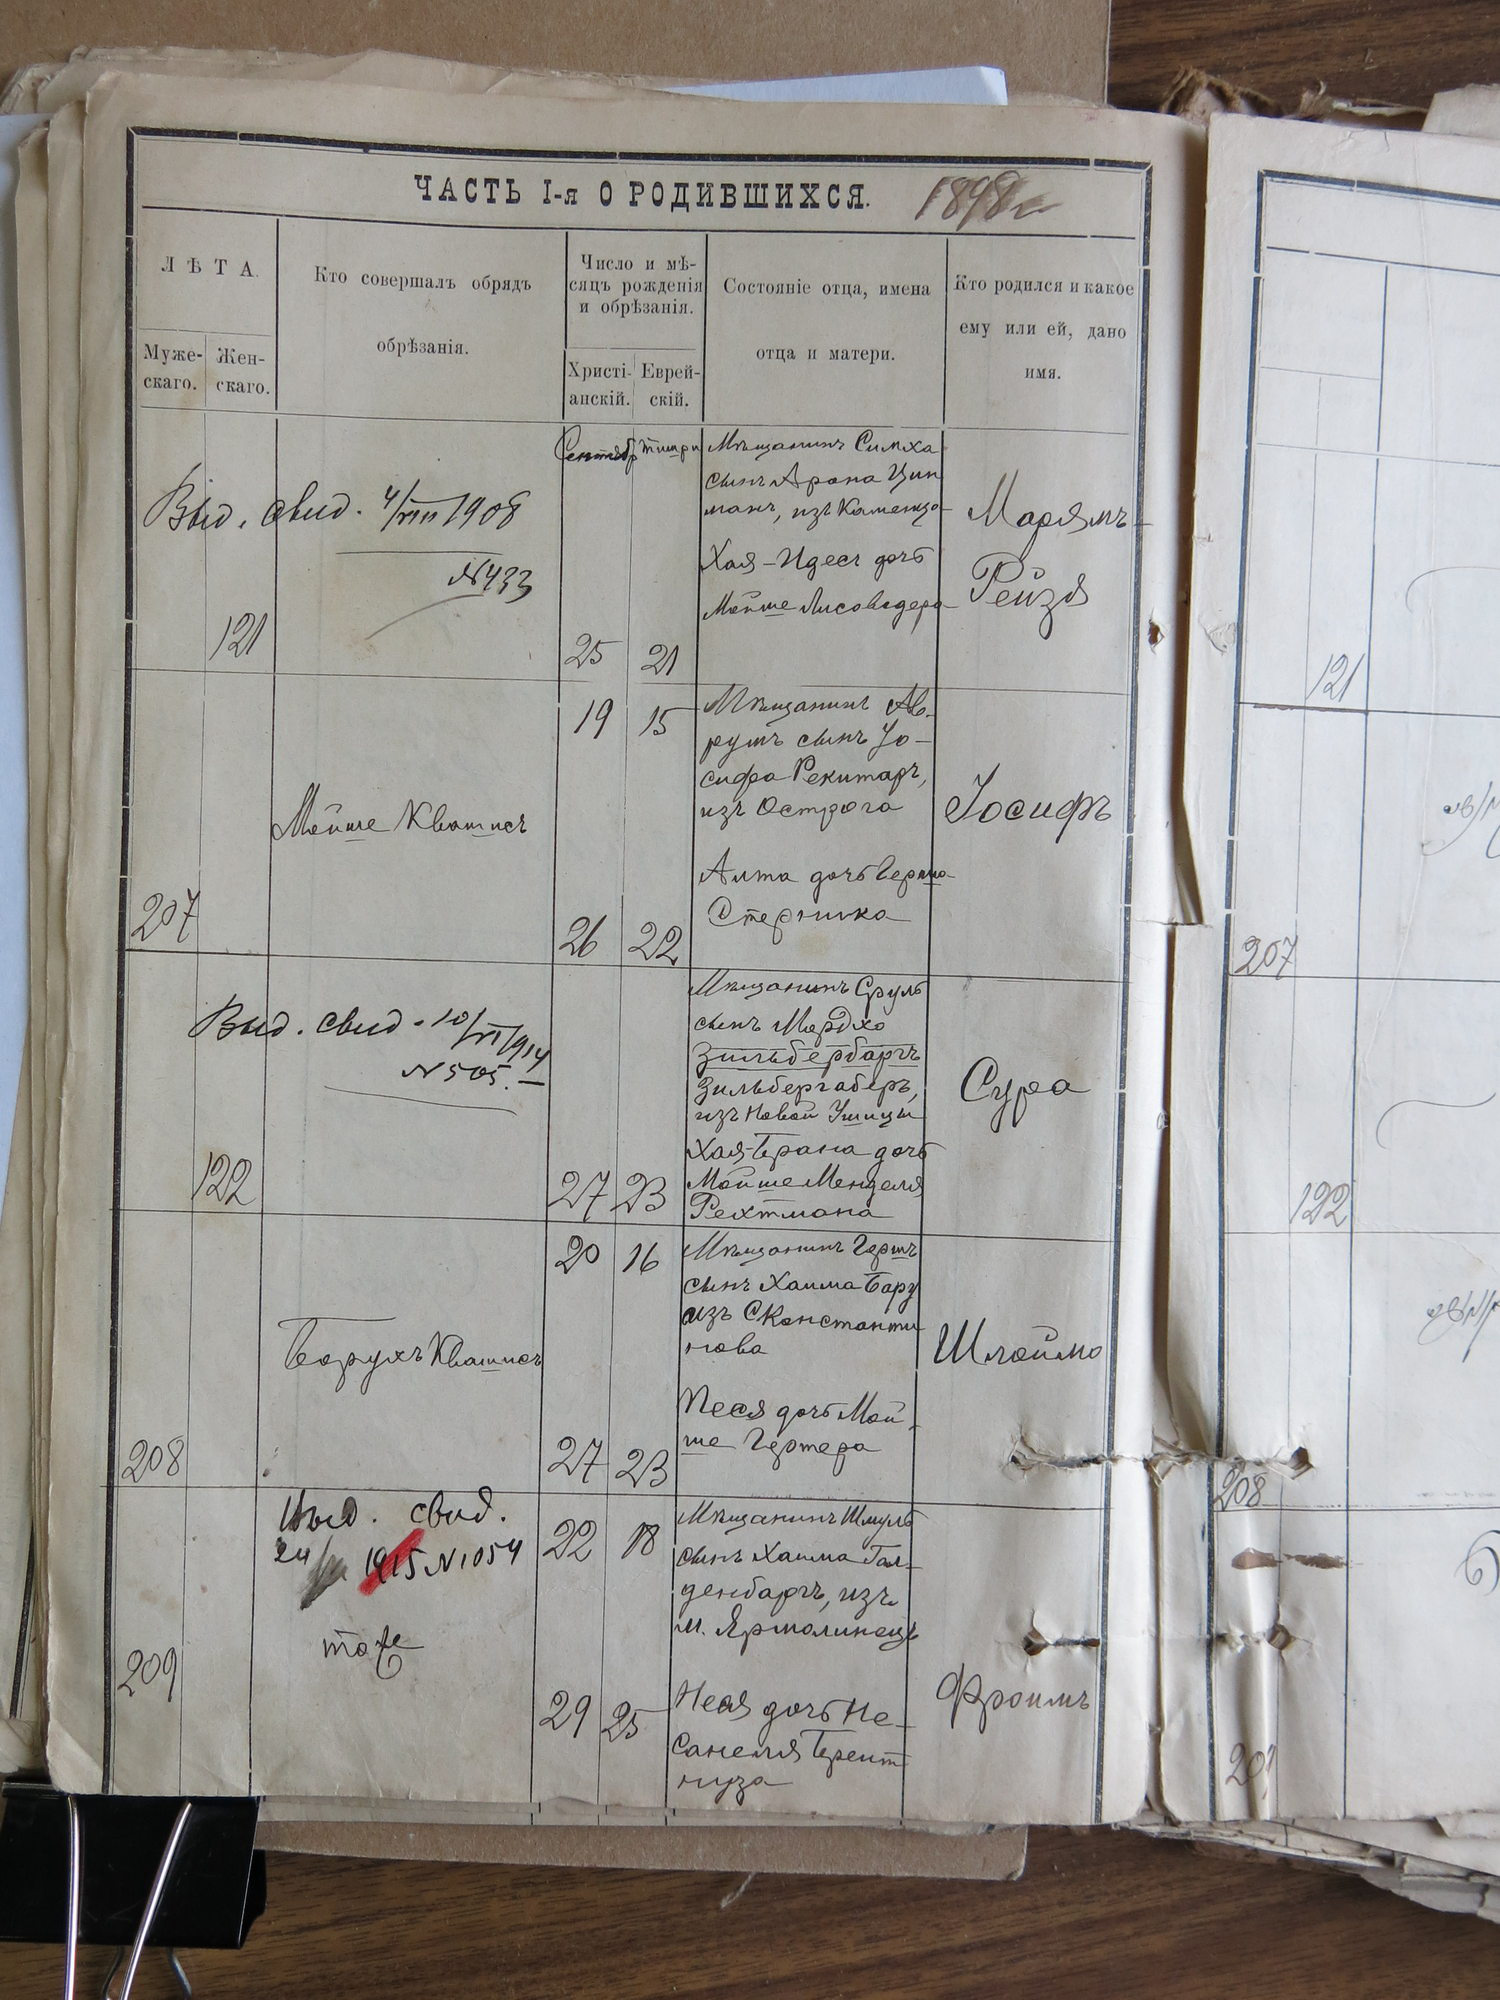 ЧАСТЬ I-я О РОДИВШИХСЯ. 1898 г
ЛѢТА.
Муже-
скаго.
Жен-
скаго.
Кто совершалъ обрядъ
обрѣзанія.
Число и мѣ-
сяцъ рожденія
и обрѣзанія.
Христі-
анскій.
Еврей-
скій.
Состояніе отца, имена
отца и матери.
Кто родился и какое
ему или ей, дано
имя.
121
Выд. свид. 4/VIII 1908
№433
Сентябр
Тишри
25
21
Мѣщанинъ Симха
сынъ Арона Цин
манъ, изъ Каменца
Хая-Идесъ дочь
Мойше Лисоводера
Марямъ-
Рейзя
207
Мойше Квашисъ
19
15
26
22
Мѣщанинъ Ав-
румъ сынъ Іо-
сифа Рекитаръ,
изъ Острога
Алта дочь Герша
Стерника
Іосифъ
122
Выд. свид. 10/VI 1914
№505.
27
23
Мѣщанинъ Сруль
сынъ Мордхо
Зильбербаргъ
Зильбергаберъ,
изъ Новой Ушицы
Хая-Брана дочь
Мойше Менделя
Рехтмана
Сура
208
Борухъ Квашисъ
20
16
27
23
Мѣщанинъ Гершъ
сынъ Хаима Бару
изъ СКонстанти
нова
Песя дочь Мой-
ше Гертера
Шлойма
209
Выд. свид.
24 1915 №1054
тоже
22
18
29
25
Мѣщанинъ Шмуль
сынъ Хаима Гол-
денбаргъ, изъ
м. Ярмолинецъ
Неся дочь Не-
санеля
Фроимъ
121
207
122
208
209